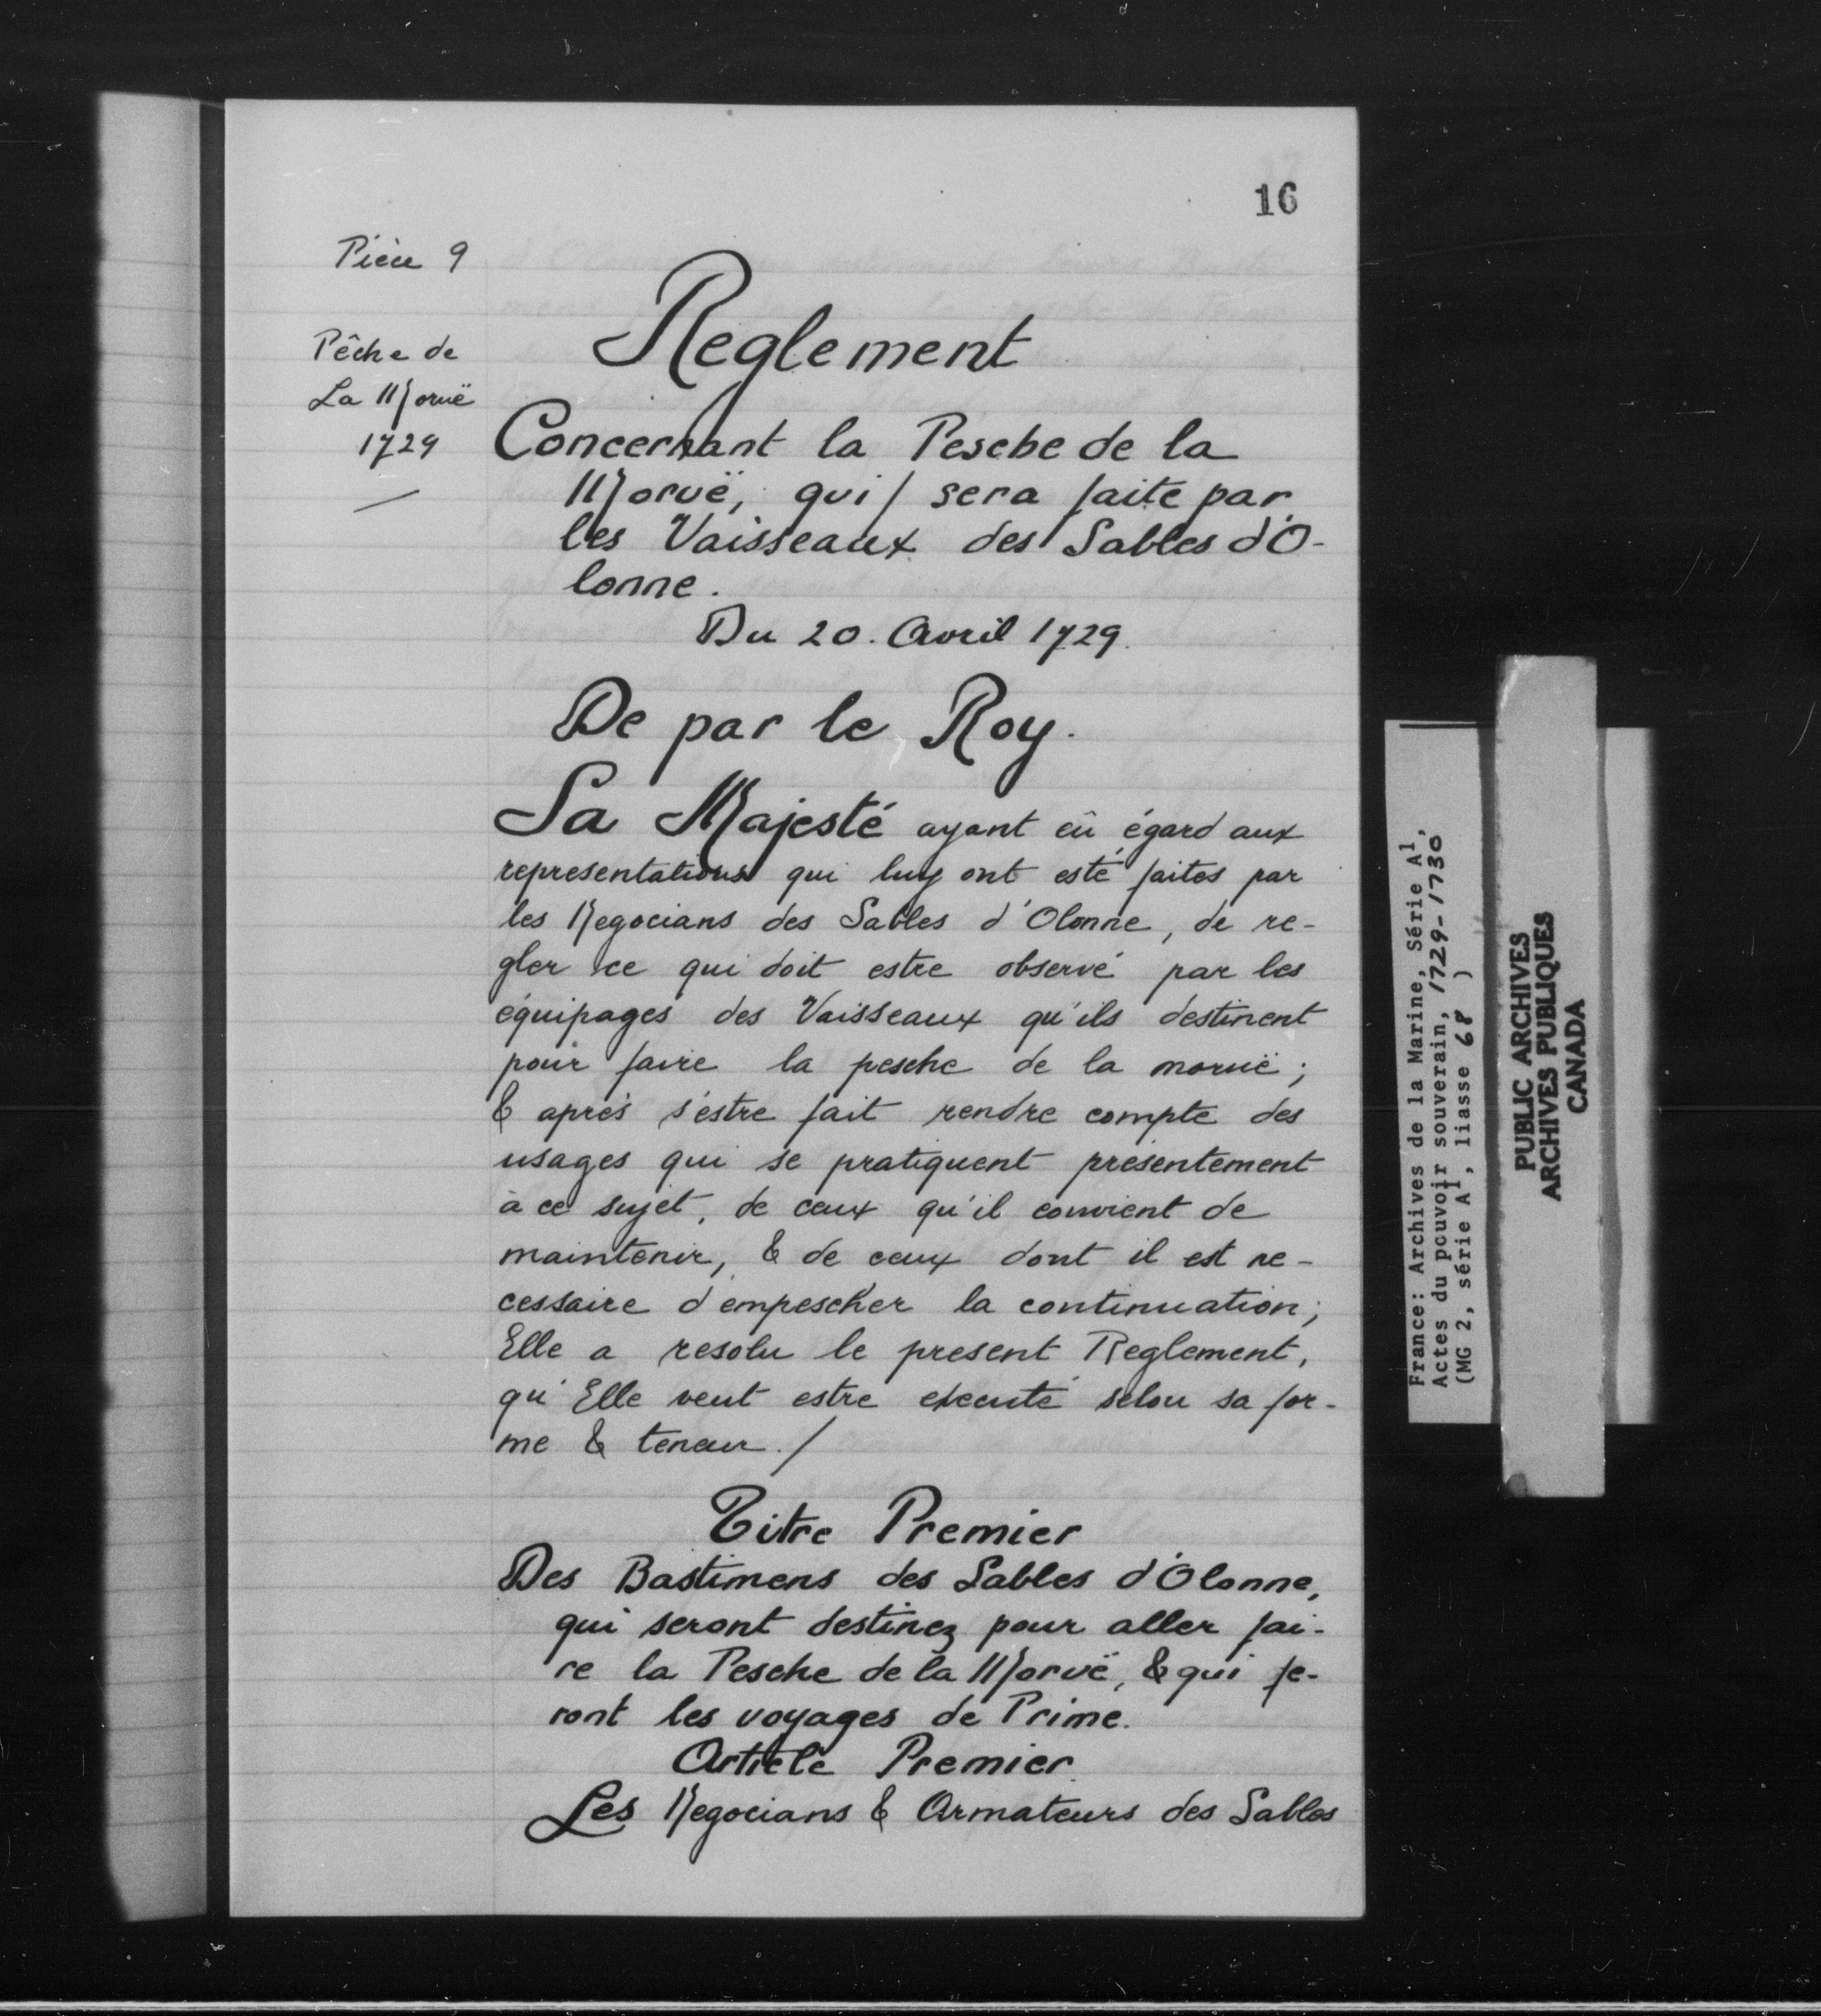 16
Pièce 9
Pêche de
La Moruë
1729
Reglement
Concernant la Pesche de la
Moruë, qui sera faite par
les Vaisseaux des Sables d'O-
lonne.
Du 20. Avril 1729.
De par le Roy.
Sa Majesté ayant eû égard aux
representations qui luy ont esté faites par
les Negocians des Sables d'Olonne, de re-
gler ce qui doit estre observé par les
équipages des Vaisseaux qu'ils destinent
pour faire la pesche de la moruë;
& aprés s'estre fait rendre compte des
usages qui se pratiquent présentement
à ce sujet, de ceux qu'il convient de
maintenir, & de ceux dont il est ne-
cessaire d'empescher la continuation;
Elle a resolu le present Reglement,
qu'Elle veut estre executé selon sa for-
me & teneur./
Titre Premier
Des Bastimens des Sables d'Olonne,
qui seront destinez pour aller fai-
re la Pesche de la Moruë, & qui fe-
ront les voyages de Prime.
Article Premier
Les Negocians & Armateurs des Sables
France: Archives de la Marine, Série A1,
Actes du pouvoir souverain, 1729-1730
(MG 2, série A1, liasse 68 )
PUBLIC ARCHIVES
ARCHIVES PUBLIQUES
CANADA